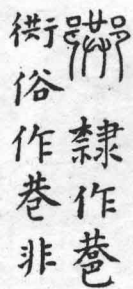 𨞠隸作
衖俗作巷非